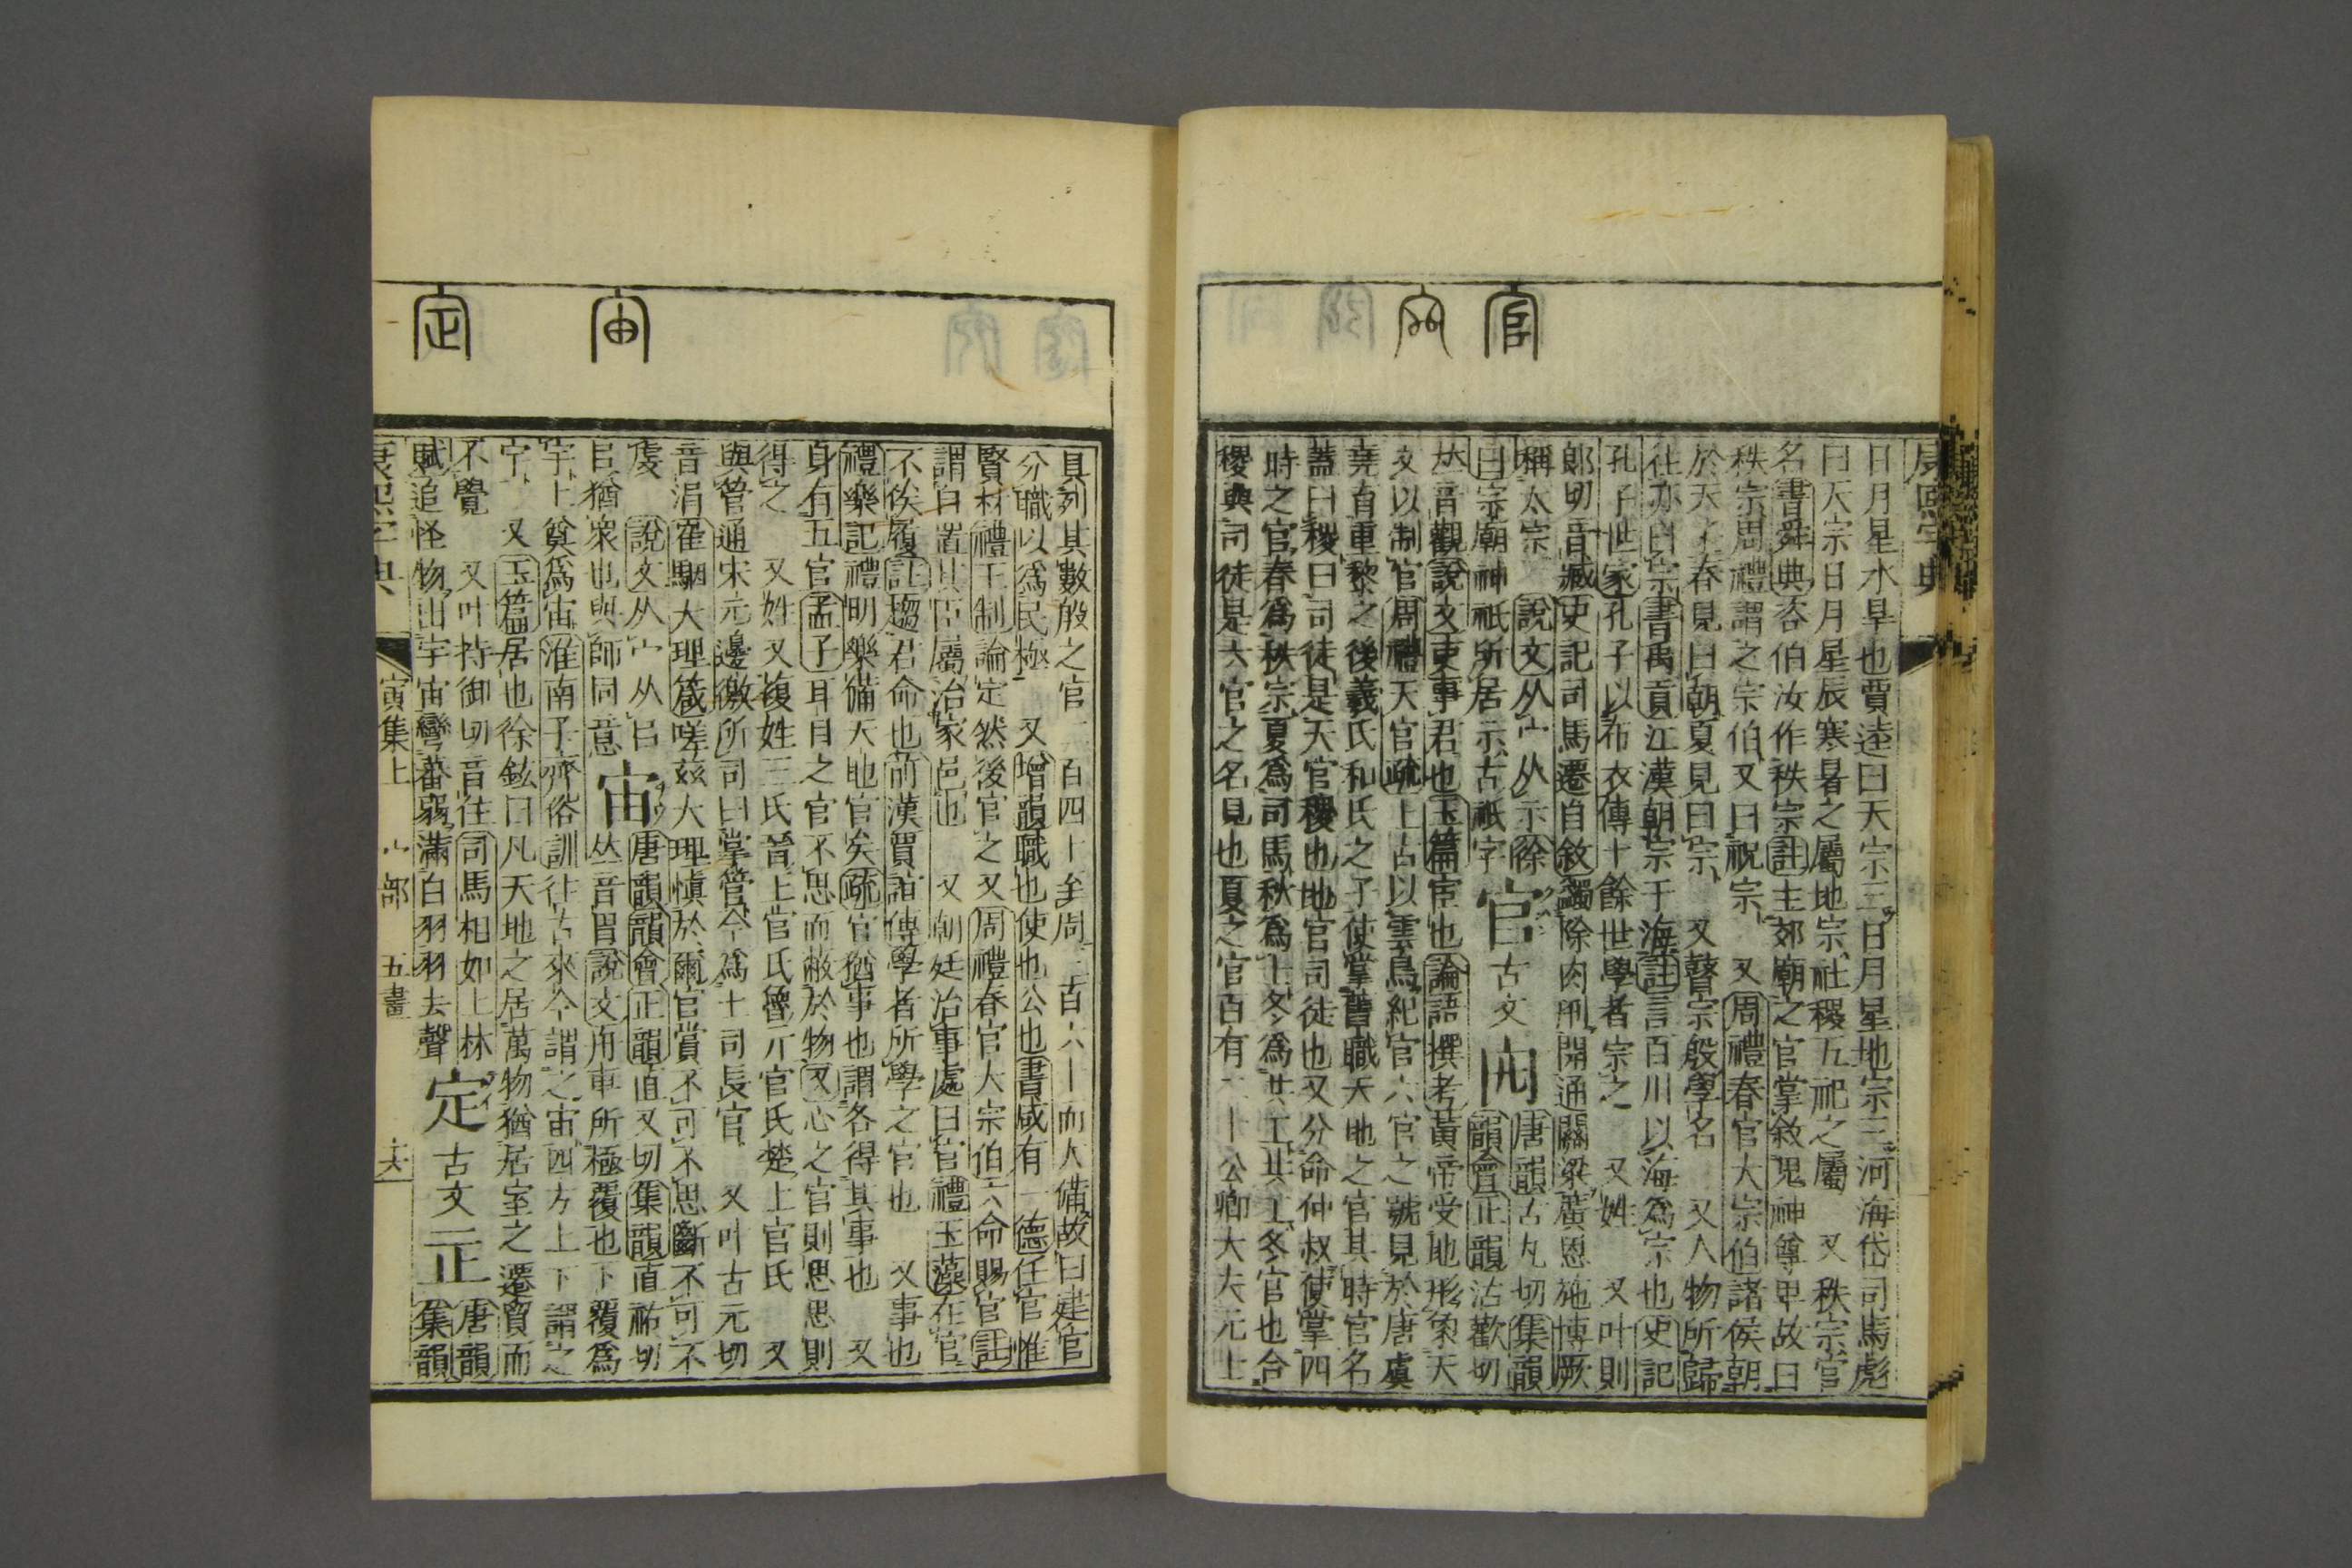 官
康熙字典
日月星水旱也賈逵曰天宗三日月星地宗三河海岱司馬彪
曰天宗日月星辰寒暑之屬地宗社稷五祀之屬 又秩宗官
名書舜典咨伯汝作秩宗註主郊廟之官掌敘鬼神尊卑故曰
秩宗周禮謂之宗伯又曰祝宗 又周禮春官大宗伯諸侯朝
於天子春見曰朝夏見曰宗 又瞽宗殷學名 又人物所歸
往亦曰宗書禹貢江漢朝宗于海註言百川以海為宗也史記
孔子世家孔子以布衣傳十餘世學者宗之 又姓 又叶則
郎切音臧史記司馬遷自敘蠲除肉刑開通關梁廣恩施博厥
稱太宗 說文从宀从示徐
曰宗廟神祇所居示古祇字 官 古文 唐韻古丸切集韻
韻會正韻沽歡切
𠀤音觀說文吏事君也玉篇宦也論語撰考黃帝受地形象天
文以制官周禮天官疏上古以雲鳥紀官六官之號見於唐虞
堯育重黎之後羲氏和氏之子使掌舊職天地之官其時官名
蓋曰稷曰司徒是天官稷也地官司徒也又分命仲叔使掌四
時之官春為秩宗夏為司馬秋為士冬為共工共工冬官也合
稷與司徒是六官之名見也夏之官百有二十公卿大夫元士
宙
定
具列其數殷之官二百四十至周三百六十而人備故曰建官
分職以為民極 又增韻職也使也公也書咸有一德任官惟
賢材禮王制論定然後官之又周禮春官大宗伯六命賜官註
謂自置其臣屬治家邑也 又朝廷治事處曰官禮玉藻在官
不俟屨註趨君命也前漢賈誼傳學者所學之官也 又事也
禮樂記禮明樂備天地官矣疏官猶事也謂各得其事也 又
身有五官孟子耳目之官不思而蔽於物又心之官則思思則
得之 又姓又複姓三氏晉上官氏魯亓官氏楚上官氏 又
與管通宋元邊徼所司曰掌管今為土司長官 又叶古元切
音涓崔駰大理箴嗟茲大理慎於爾官賞不可不思斷不可不
虔 說文从宀从𠂤
𠂤猶衆也與師同意 宙 唐韻韻會正韻直又切集韻直祐切
𠀤音冑說文舟車所極覆也下覆為
宇上奠為宙淮南子齊俗訓往古來今謂之宙四方上下謂之
宇 又玉篇居也徐鉉曰凡天地之居萬物猶居室之遷貿而
不覺 又叶持御切音住司馬相如上林
賦追怪物出宇宙彎蕃弱滿白羽羽去聲 定 古文𤴓 唐韻
集韻
康熙字典 寅集上 宀部 五畫 六